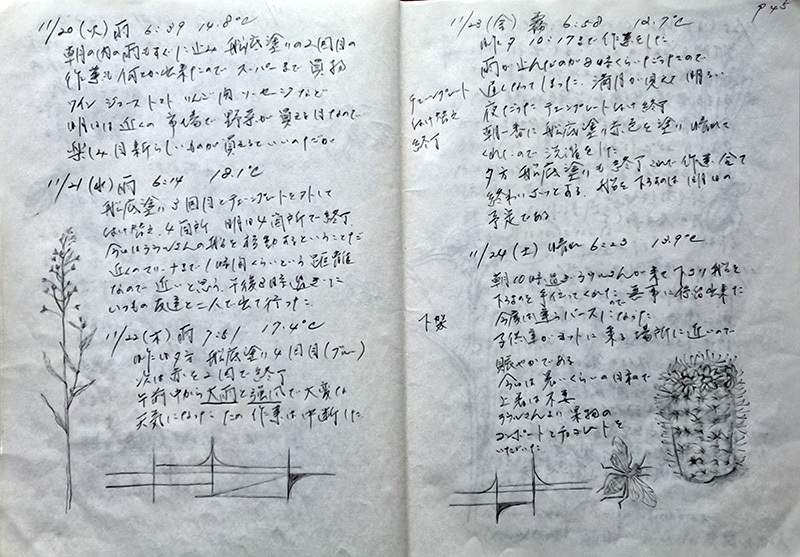 11/20 (火) 雨 6:39 14.8℃
朝の内の雨もすぐに止み 船底塗りの2回目の
作業も何とか出来たので スーパーまで買物
ワイン ジュース トマト りんご 肉 ソーセージなど
明日は近くの 市場で 野菜が買える日なので
楽しみ 目新しいものが買えるといいのだが
11/21 (水) 雨 6:14 18.1℃
船底塗り3回目とチェンプレートを外して
付け替え 4箇所 明日4箇所で終了
今日はラウルさんの船を移動するということだ
近くのマリーナまで1時間くらいという距離
なので 近いと思う 午後3時過ぎに
いつもの友達と二人で出て行った
11/22 (木) 雨 7:51 17.4℃
昨日夕方 船底塗り4回目(ブルー)
次は赤を2回で終了
午前中から大雨と強風で大変な
天気になった この作業は中断した
P45
11/23 (金) 霧 6:58 12.7℃
昨夕 10:17まで作業をした
雨が止んだのが8時くらいだったので
遅くなってしまった 満月が見えて明るい
夜だった チェンプレート付け終了
チェンプレート
付け替え
終了
朝一番に船底塗り赤色を塗り 晴れて
くれたので洗濯をした
夕方 船底塗りも終了これで作業全て
終わりそうである 船を下ろすのは明日の
予定である
11/24 (土) 晴れ 6:23 13.9℃
朝10時過ぎラウルさんが来て下さり船を
下ろすのを手伝ってくれたので無事に係留出来た
下架
今度は違うバースになった
子供達がヨットに乗る場所に近いので
賑やかである
今日は暑いくらいの日和で
上着は不要
ラウルさんより果物の
コンポートとチョコレートを
いただいた